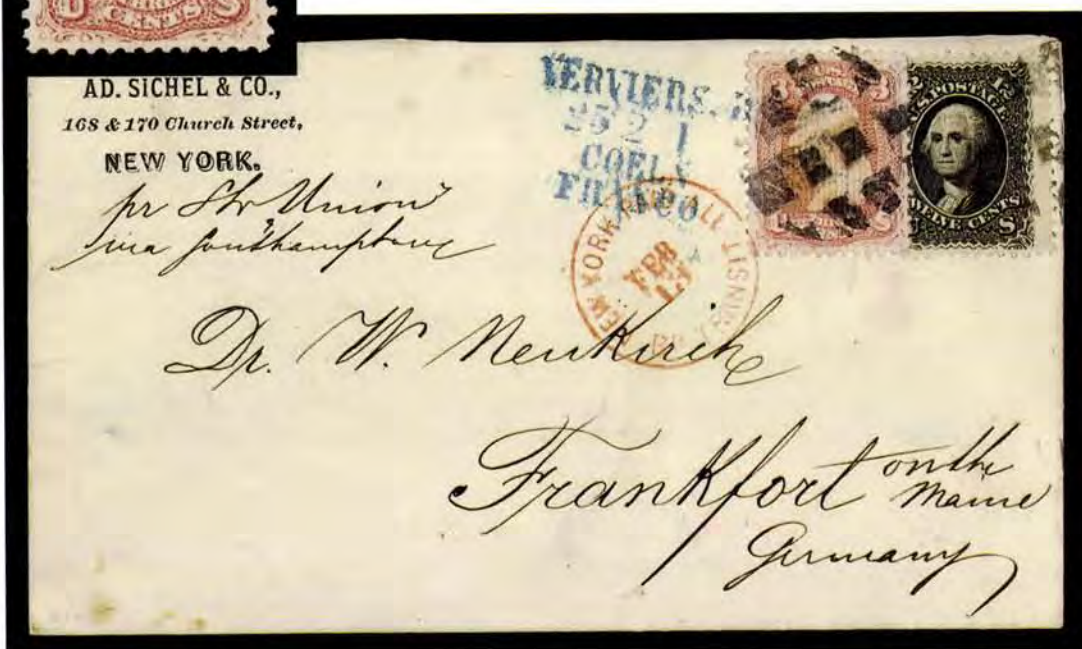 CENTS
AD. SICHEL & CO.,
168 & 170 Church Street,
NEW YORK.
pr Str Union
via Southampton
VERVIERS.
25 2 I
COELN
FRANCO
NEW YORK PAID ALL TRANSIT
FEB
13
3 3
12 12
U.S. POSTAGE
TWELVE CENTS
Dr. W. Neukirch
Frankfort on the
Maine
Germany